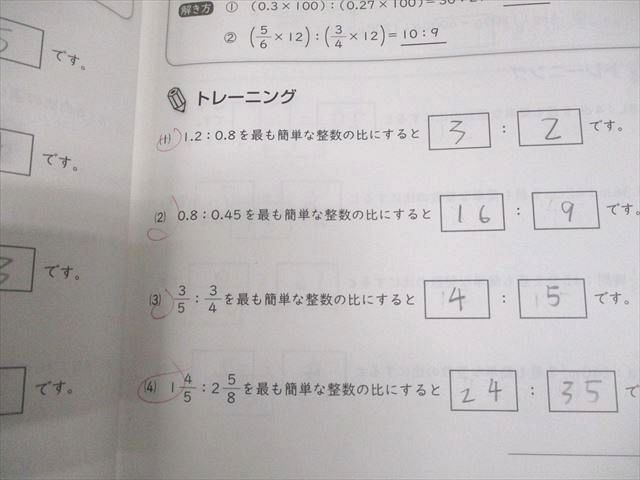 解き方 ① (0.3×100):(0.27×100)=30:
② (5/6×12):(3/4×12)=10:9
トレーニング
(1) 1.2:0.8を最も簡単な整数の比にすると 3 : 2 です。
(2) 0.8:0.45を最も簡単な整数の比にすると 16 : 9 です。
(3) 3/5:3/4を最も簡単な整数の比にすると 4 : 5 です。
(4) 1 4/5:2 5/8を最も簡単な整数の比にすると 24 : 35 で
5 です。
です。
3 です。
です。